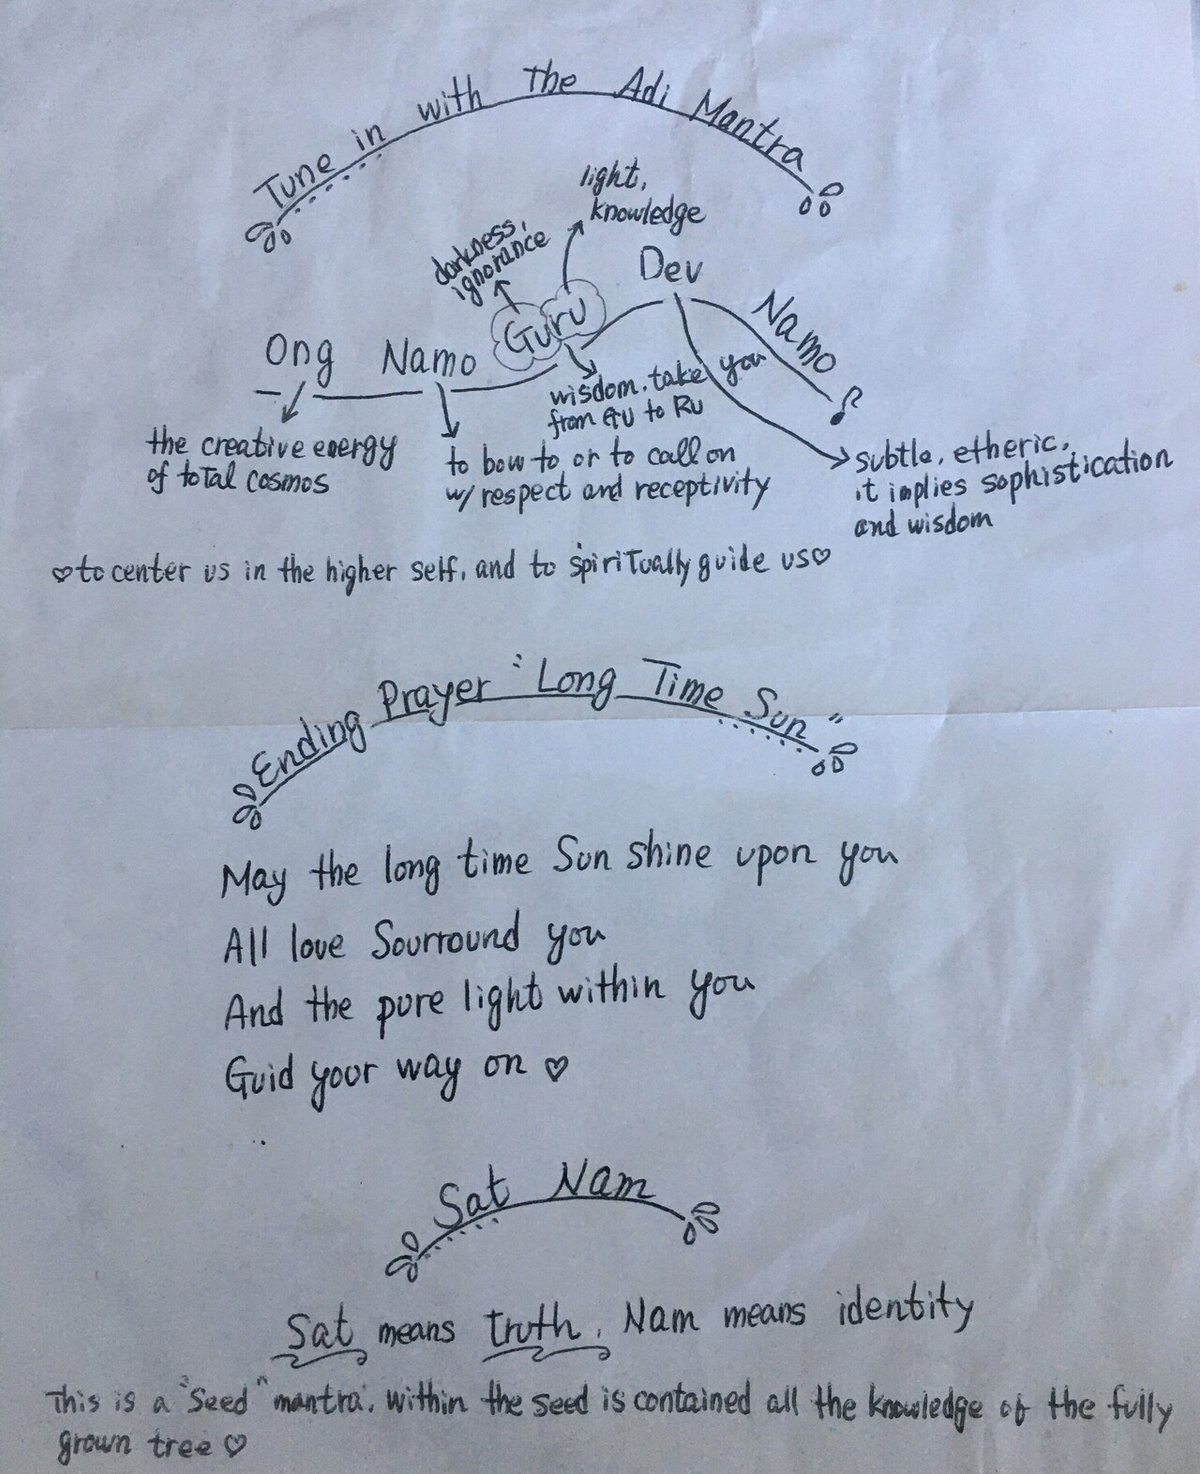 Tune in with The Adi Mantra
light,
knowledge
darkness,
ignorance
Ong Namo Guru Dev Namo
wisdom. take you
from GU to RU
the creative energy
of total cosmos
to bow to or to call on
w/ respect and receptivity
subtle, etheric,
it implies sophistication
and wisdom
♡to center us in the higher self, and to spiritually guide us♡
Ending Prayer "Long Time Sun"
May the long time Sun shine upon you
All love Sourround you
And the pure light within you
Guid your way on ♡
Sat Nam
Sat means truth, Nam means identity
This is a "Seed" mantra, within the seed is contained all the knowledge of the fully
grown tree ♡